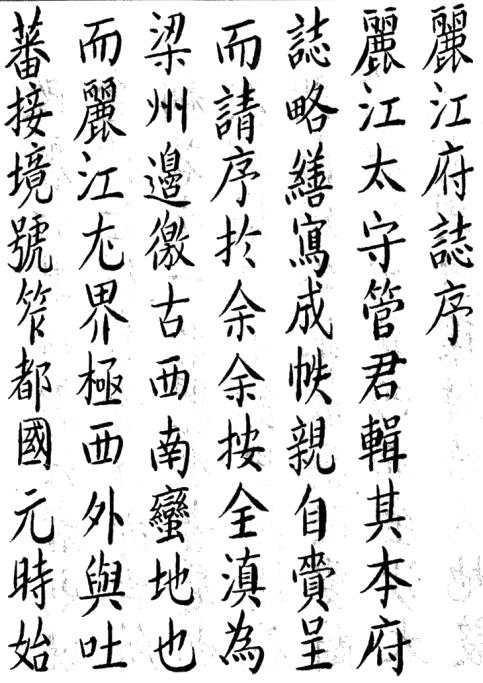 麗江府誌序
麗江太守管君輯其本府
誌略繕寫成帙親自賫呈
而請序於余余按全滇為
梁州邊徼古西南蠻地也
而麗江尤界極西外與吐
蕃接境號筰都國元時始